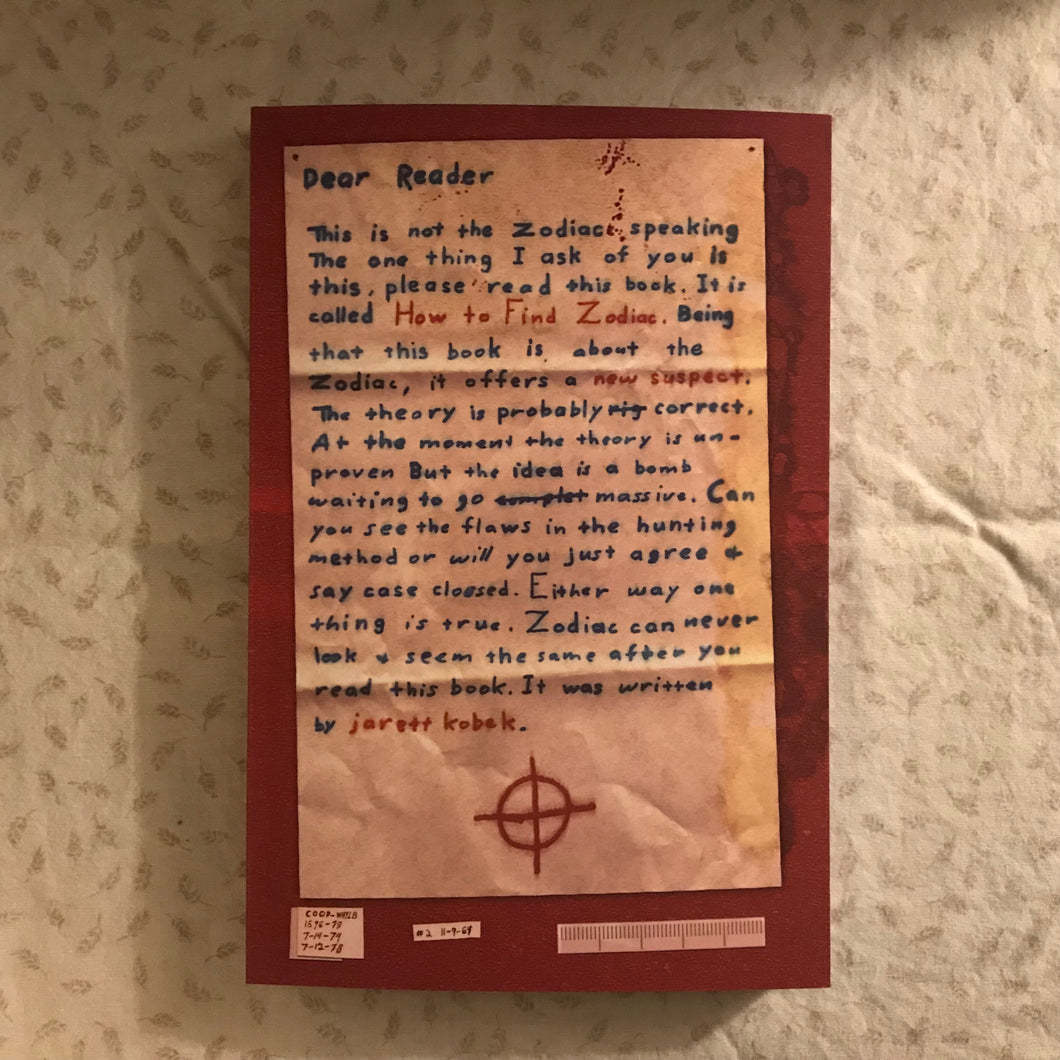 Dear Reader
This is not the Zodiac speaking
The one thing I ask of you is
this, please read this book. It is
called How to Find Zodiac. Being
that this book is about the
Zodiac, it offers a new suspect.
The theory is probably rig correct.
At the moment the theory is un-
proven But the idea is a bomb
waiting to go complet massive. Can
you see the flaws in the hunting
method or will you just agree &
say case cloesed. Either way one
thing is true. Zodiac can never
look & seem the same after you
read this book. It was written
by jarett kobek.
#2 11-9-69
7-14-79
7-12-78